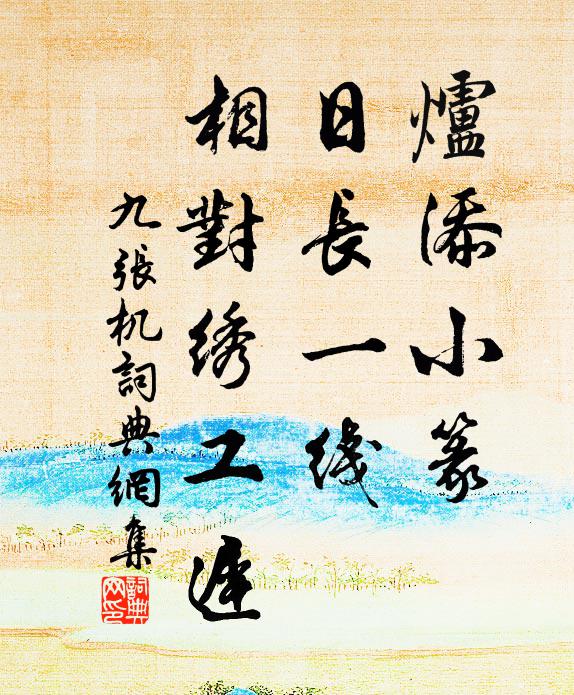 爐添小篆
日長一线
相對绣工遲
九張机詞典網集
詞典
网印